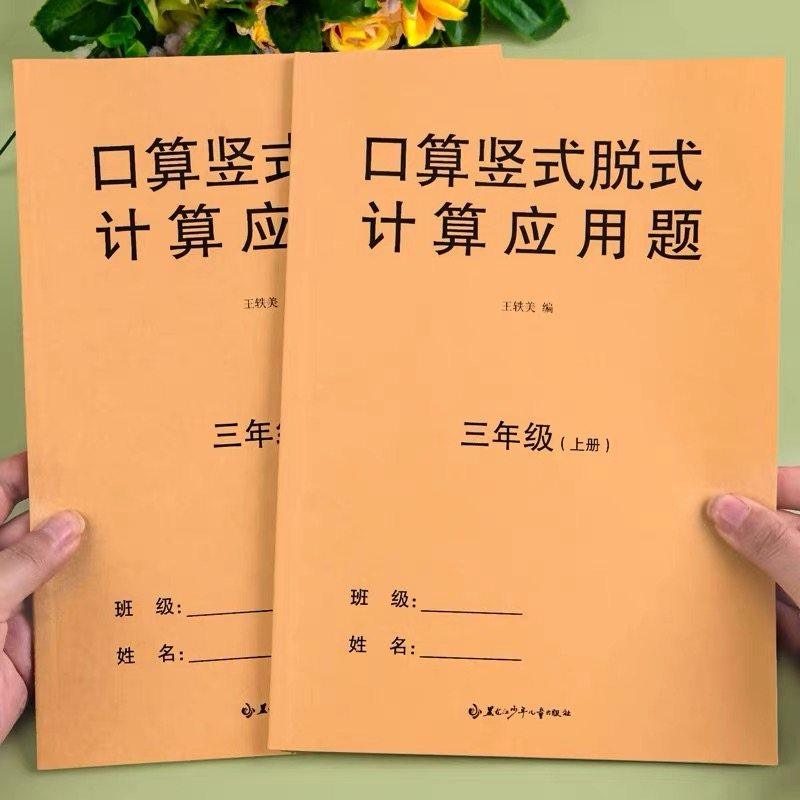 口算竖式
计算应
王轶美
三年级
班 级:
姓 名:
黑龙江少年儿童出版社
口算竖式脱式
计算应用题
王轶美 编
三年级(上册)
班 级:
姓 名:
黑龙江少年儿童出版社